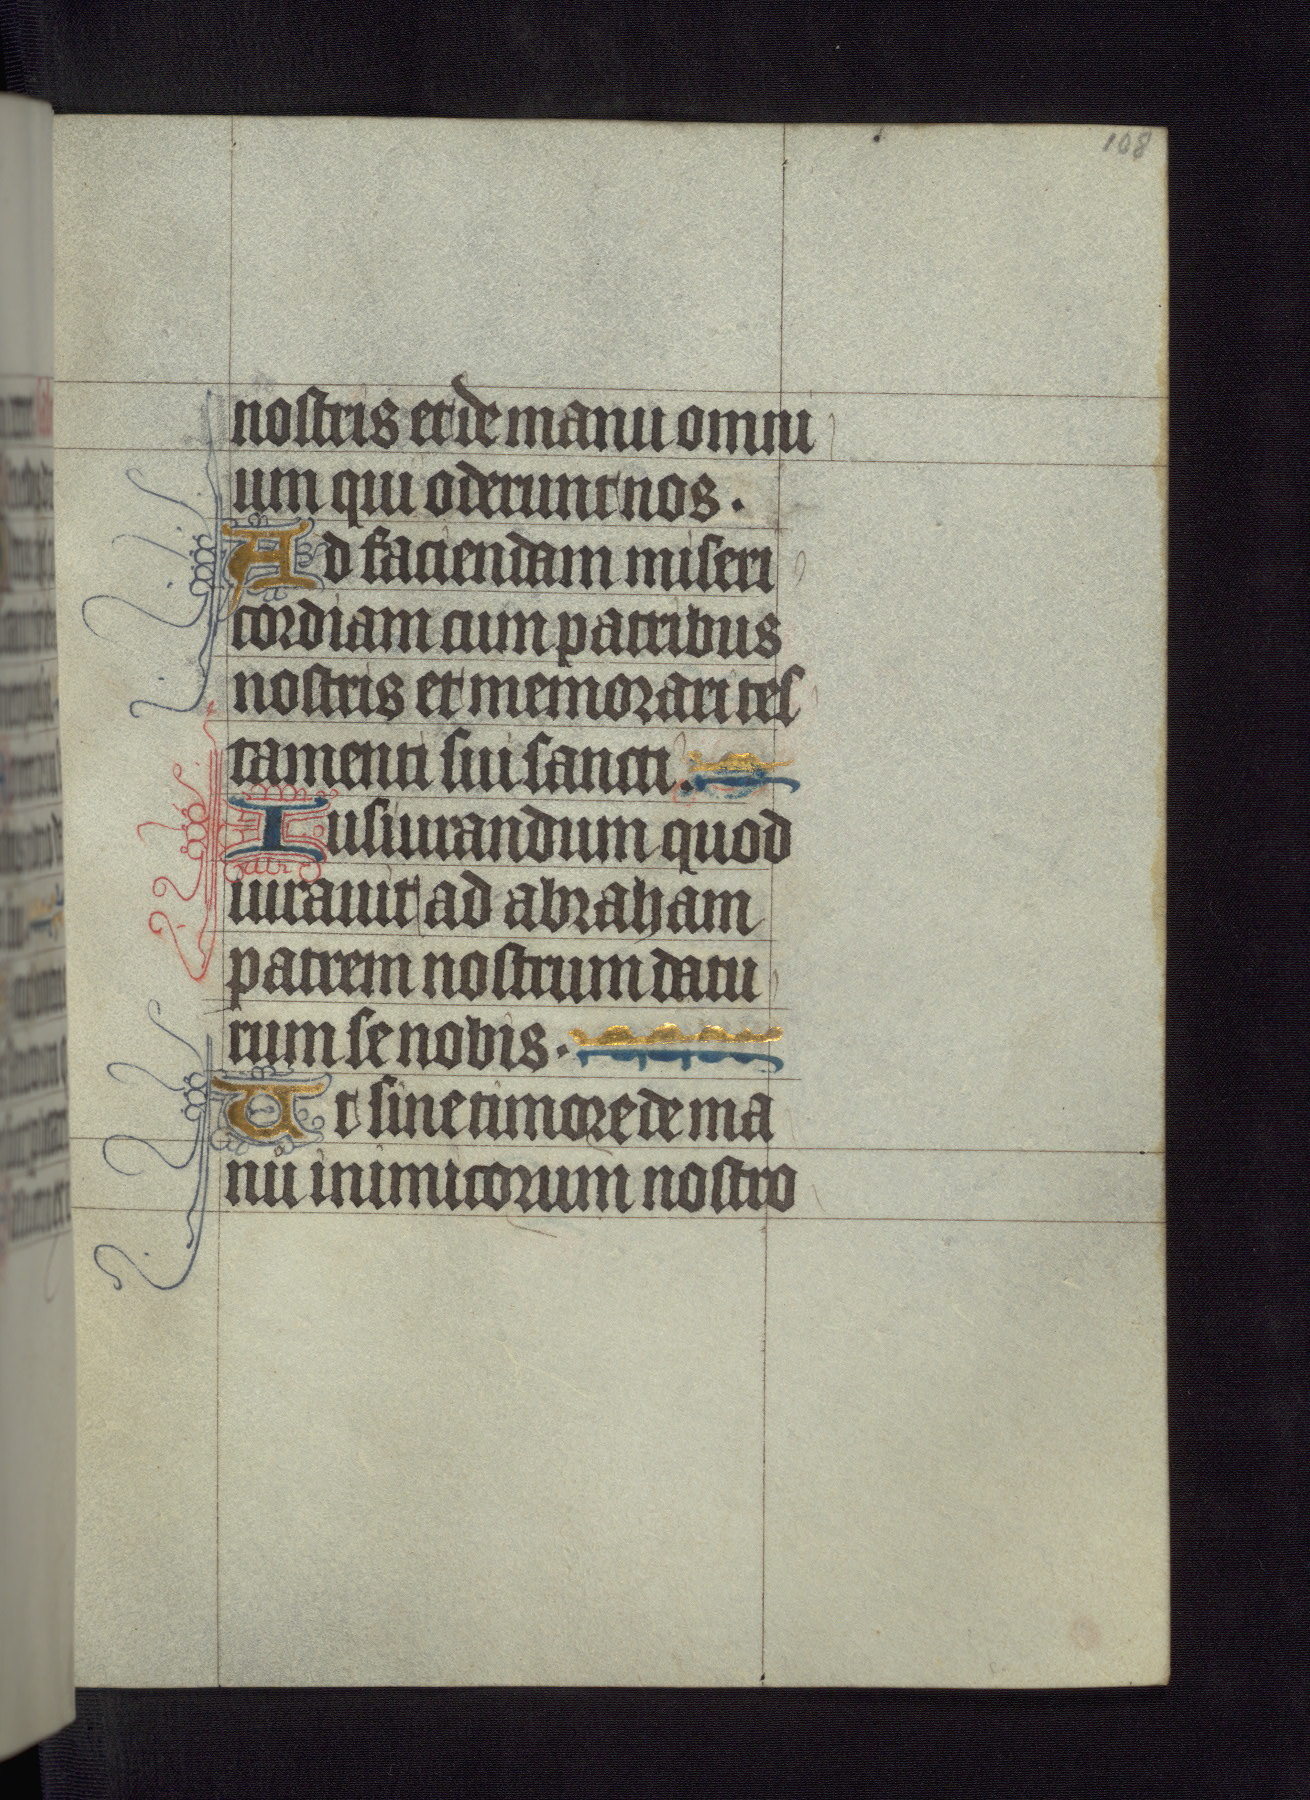 108
nostris et de manu omni
um qui oderunt nos.
Ad faciendam miseri
cordiam cum patribus
nostris et memorari tes
tamenti sui sancti.
Iusiurandum quod
iurauit ad abraham
patrem nostrum datu
rum se nobis.
Ut sine timore de ma
nu inimicorum nostro